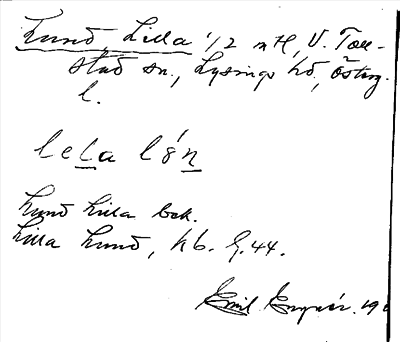 Lund, Lilla 1/2 mtl, V. Toll-
stad sn., Lysings hd, Österg.
l.
lela lón
Lund Lilla bok.
Lilla Lund, hb. G. 44.
Emil